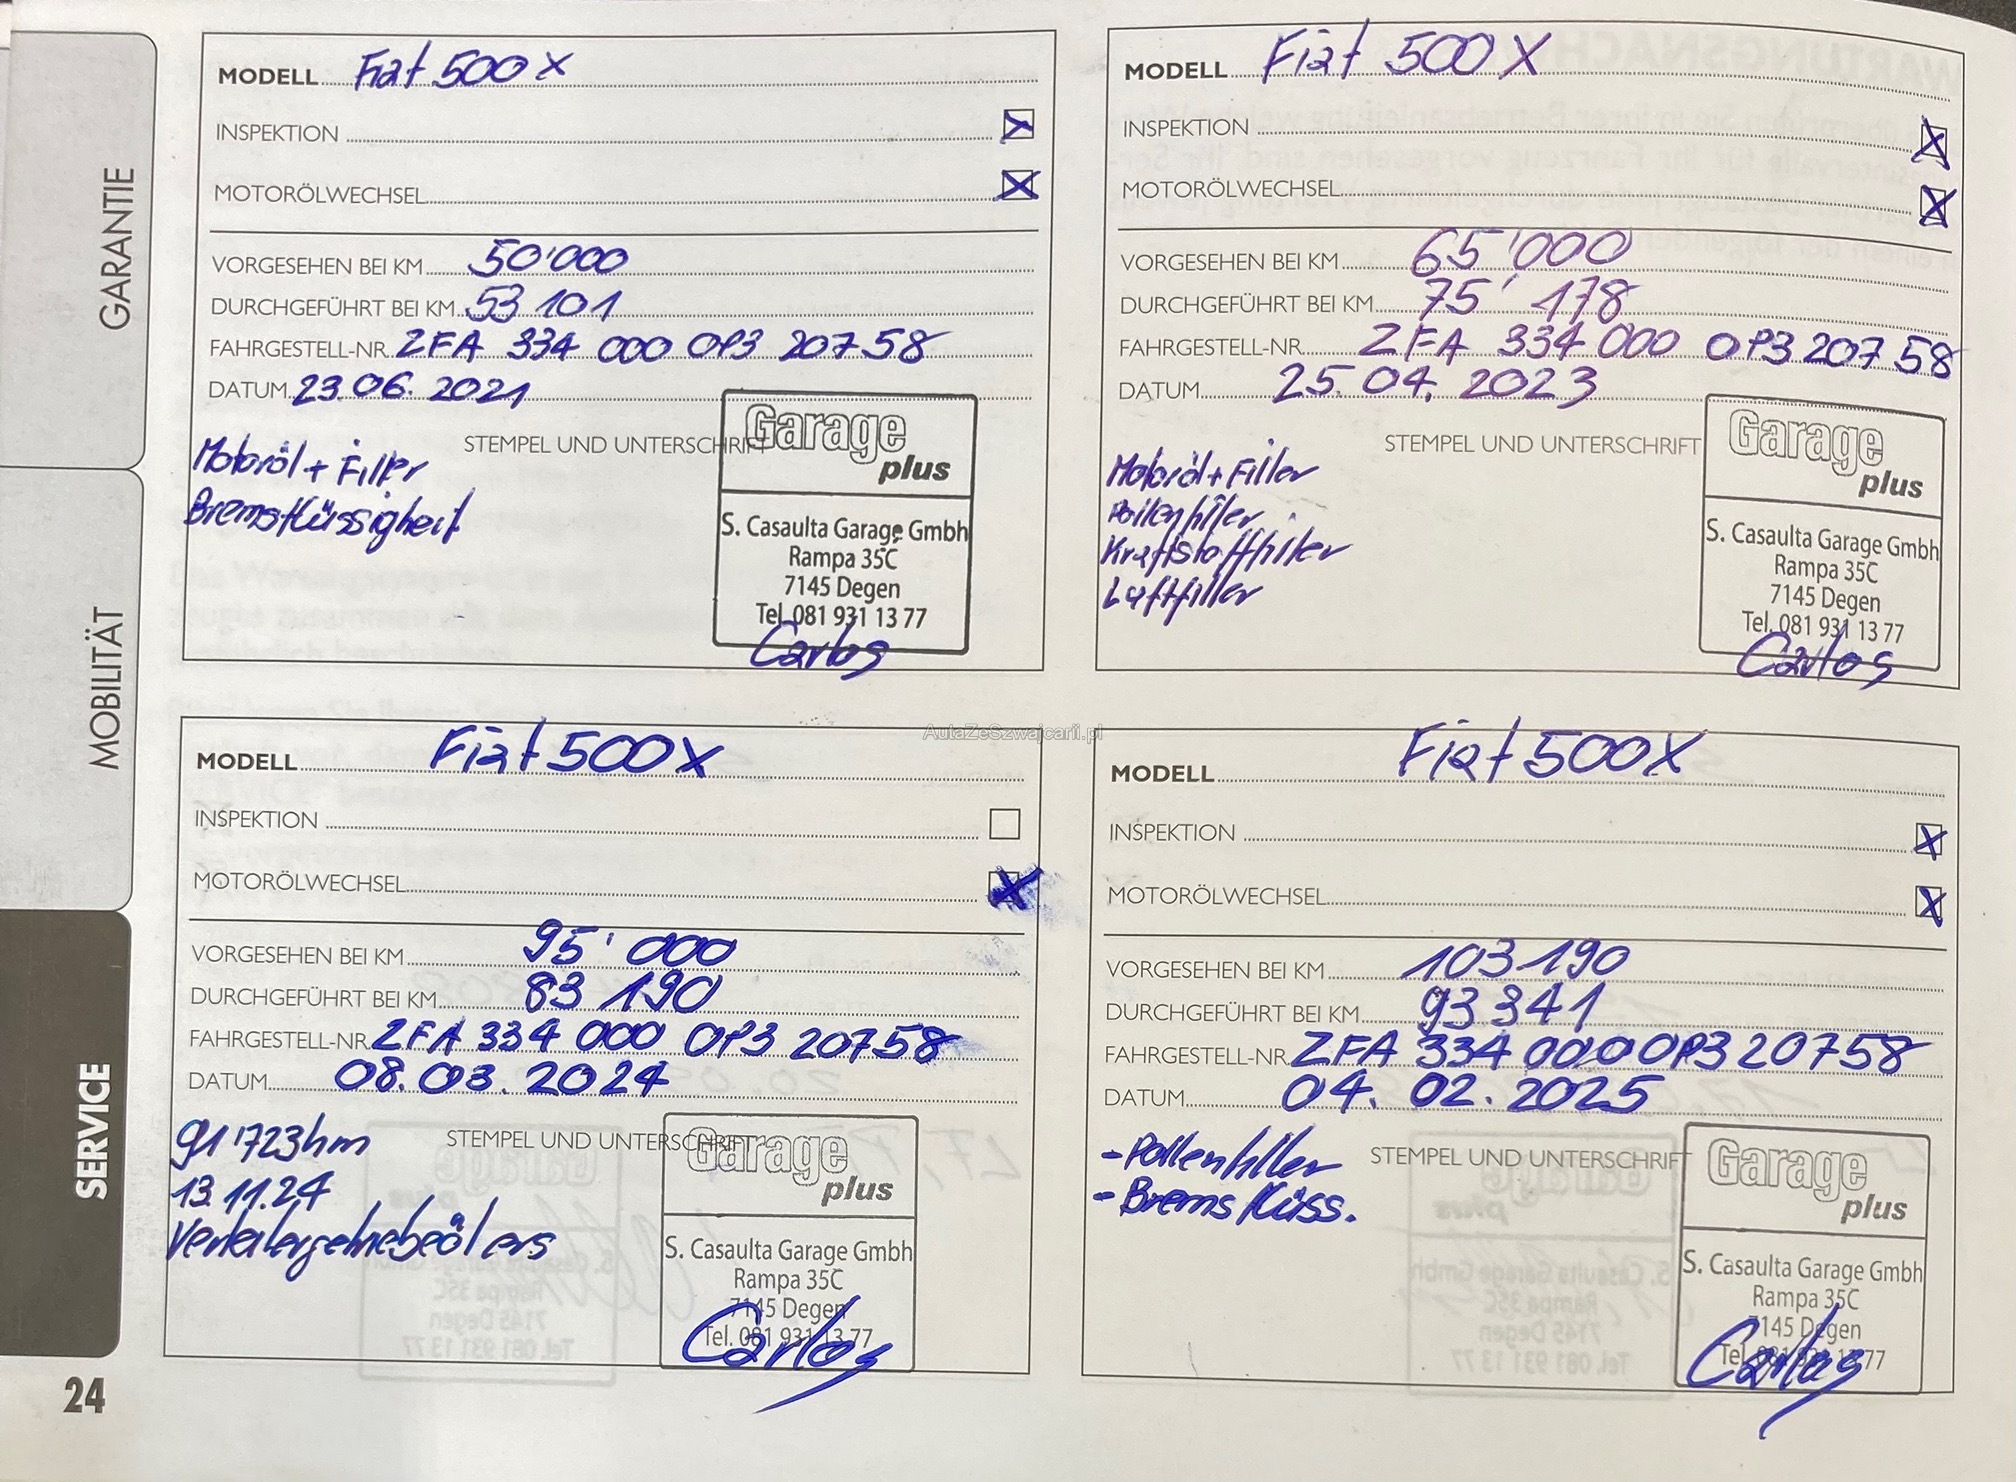 GARANTIE
MOBILITÄT
SERVICE
24
MODELL Fiat 500 X
INSPEKTION
MOTORÖLWECHSEL
VORGESEHEN BEI KM 50'000
DURCHGEFÜHRT BEI KM 53 101
FAHRGESTELL-NR. ZFA 334 000 0P3 20758
DATUM 23.06.2021
STEMPEL UND UNTERSCHRIFT
Motoröl + Filter
Bremsflüssigkeit
Garage
plus
S. Casaulta Garage Gmbh
Rampa 35C
7145 Degen
Tel. 081 931 13 77
Carlos
MODELL Fiat 500 X
INSPEKTION
MOTORÖLWECHSEL
VORGESEHEN BEI KM 65'000
DURCHGEFÜHRT BEI KM 75'178
FAHRGESTELL-NR. ZFA 334 000 0P3 207 58
DATUM 25.04.2023
STEMPEL UND UNTERSCHRIFT
Motoröl + Filter
Pollenfilter
Kraftstofffilter
Luftfilter
Garage
plus
S. Casaulta Garage Gmbh
Rampa 35C
7145 Degen
Tel. 081 931 13 77
Carlos
AutaZeSzwajcarii.pl
MODELL Fiat 500X
INSPEKTION
MOTORÖLWECHSEL
VORGESEHEN BEI KM 95'000
DURCHGEFÜHRT BEI KM 83 190
FAHRGESTELL-NR. ZFA 334 000 0P3 20758
DATUM 08.03.2024
STEMPEL UND UNTERSCHRIFT
91'723km
13.11.24
Verteilergetriebeöl ers
Garage
plus
S. Casaulta Garage Gmbh
Rampa 35C
7145 Degen
Tel. 081 931 13 77
Carlos
MODELL Fiat 500X
INSPEKTION
MOTORÖLWECHSEL
VORGESEHEN BEI KM 103 190
DURCHGEFÜHRT BEI KM 93 341
FAHRGESTELL-NR. ZFA 334 000 0P3 20758
DATUM 04.02.2025
STEMPEL UND UNTERSCHRIFT
- Pollenfilter
- Bremsflüss.
Garage
plus
S. Casaulta Garage Gmbh
Rampa 35C
7145 Degen
Tel. 081 931 13 77
Carlos